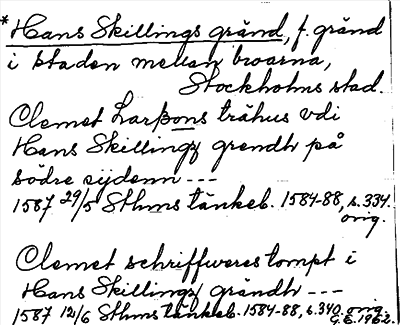 *Hans Skillings gränd, f. gränd
i staden mellan broarna,
Stockholms stad.
Clemet Larßons trähus vdi
Hans Skillingz grendh på
södre sijdenn ---
1587 29/5 Sthms tänkeb. 1584-88, s. 334.
orig.
Clemet schriffweres tompt i
Hans Skillingz grändh ---
1587 12/6 Sthms tänkeb. 1584-88, s. 340. orig.
G.E. 1962.